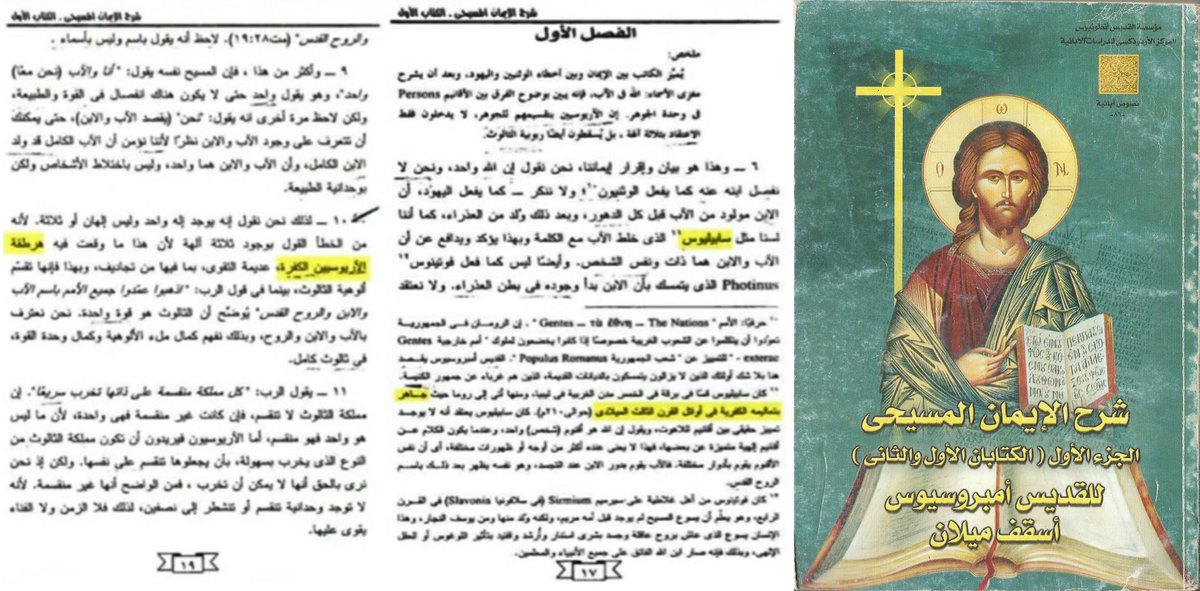 مؤسسة القديس أنطونيوس
المركز الأرثوذكسي للدراسات الآبائية
نصوص آبائية
شرح الإيمان المسيحى
الجزء الأول ( الكتابان الأول والثانى )
للقديس أمبروسيوس
أسقف ميلان
شرح الإيمان المسيحى ـ الكتاب الأول
الفصل الأول
ملخص:
يُميِّز الكاتب بين الإيمان وبين أخطاء الوثنيين واليهود، وبعد أن يشرح
مغزى الأسماء: الله ق الآب، فإنه يبين بوضوح الفرق بين الأقانيم Persons
فى وحدة الجوهر. إن الأريوسيين بتقسيمهم للجوهر، لا يدخلون فقط
الإعتقاد بثلاثة آلهة ، بل يُسقطون أيضًا ربوبية الثالوث.
٦ ـ وهذا هو بيان وإقرار إيماننا، نحن نقول إن الله واحد، ونحن لا
نفصل ابنه عنه كما يفعل الوثنيون١٠؛ ولا ننكر ـ كما يفعل اليهود، أن
الابن مولود من الآب قبل كل الدهور، وبعد ذلك وُلد من العذراء، كما أننا
لسنا مثل سابيليوس١١ الذى خلط الآب مع الكلمة وبهذا يؤكد ويدافع عن أن
الآب والابن هما ذات ونفس الشخص. وأيضًا ليس كما فعل فوتينوس١٢
Photinus الذى يتمسك بأن الابن بدأ وجوده فى بطن العذراء. ولا نعتقد
١٠ حرفيًا: الأمم " Gentes ـ τὰ ἔθνη ـ The Nations " . إن الرومان فى الجمهورية
تعوّدوا أن يتكلموا عن الشعوب الغريبة خصوصًا إذا كانوا يخضعون لملوك " أمم خارجية Gentes
exterae - " للتمييز عن " شعب الجمهورية Populus Romanus ". القديس أمبروسيوس يقصد
هنا بلا شك أولئك الذين لا يزالون يتمسكون بالديانات القديمة، الذين هم غرباء عن جمهور الكنيسة.
١١ كان سابيليوس أسقفًا فى برقة فى الخمس مدن الغربية فى ليبيا، ومنها أتى إلى روما حيث جاهر
بتعاليمه الكفرية فى أوائل القرن الثالث الميلادى (حوالى ٢١٠م). كان سابيليوس يعتقد أنه لا يوجد
تمييز حقيقى بين أقانيم اللاهوت، ويقول إن الله هو أقنوم (شخص) واحد، وعندما يكون الكلام عن
أقانيم إلهية متميزة عن بعضها، فهذا لا يعنى عنده أكثر من أوجه أو ظهورات مختلفة، أى أن نفس
الأقنوم يقوم بأدوار مختلفة. فالآب يقوم بدور الابن عند التجسد، وهو نفسه يظهر بعد ذلك باسم
الروح القدس.
١٢ كان فوتينوس من أهل غلاطية على سيرميم Sirmium (فى سلافونيا Slavonia) فى القرن
الرابع، وهو يعلّم أن يسوع المسيح لم يوجد قبل أمه مريم، ولكنه وُلد منها ومن يوسف النجار، وهذا
الإنسان يسوع الذى عاش بروح عاقلة وجسد بشرى استنار وأُرشد وقُيد بتأثير اللوغوس أو العقل
الإلهى، وبذلك فإنه صار ابن الله الفائق على جميع الأنبياء والمعلمين.
١٧
شرح الإيمان المسيحى ـ الكتاب الأول
والروح القدس" (مت٢٨:١٩). لاحظ أنه يقول باسم وليس بأسماء .
٩ ـ وأكثر من هذا ، فإن المسيح نفسه يقول: "أنا والآب (نحن معًا)
واحد"، وهو يقول واحد حتى لا يكون هناك انفصال فى القوة والطبيعة،
ولكن لاحظ مرة أخرى انه يقول: "نحن" (يقصد الآب والابن)، حتى يمكنك
أن تتعرف على وجود الآب والابن نظرًا لأننا نؤمن أن الآب الكامل قد ولد
الابن الكامل، وأن الآب والابن هما واحد، وليس باختلاط الأشخاص ولكن
بوحدانية الطبيعة.
١٠ ـ لذلك نحن نقول إنه يوجد إله واحد وليس إلهان أو ثلاثة. لأنه
من الخطأ القول بوجود ثلاثة آلهة لأن هذا ما وقعت فيه هرطقة
الأريوسيين الكفرة، عديمة التقوى، بما فيها من تجاديف، وبهذا فإنها تقسّم
ألوهية الثالوث، بينما فى قول الرب: "اذهبوا عمّدوا جميع الأمم باسم الآب
والابن والروح القدس" يُوضّح أن الثالوث هو قوة واحدة. نحن نعترف
بالآب والابن والروح، وبذلك نفهم كمال ملء الألوهية وكمال وحدة القوة،
فى ثالوث كامل.
١١ ـ يقول الرب: "كل مملكة منقسمة على ذاتها تخرب سريعًا". إن
مملكة الثالوث لا تنقسم، فإن كانت غير منقسمة فهى واحدة، لأن ما ليس
هو واحد فهو منقسم، أما الأريوسيون فيريدون أن تكون مملكة الثالوث من
النوع الذى يخرب بسهولة، بأن يجعلوها تنقسم على نفسها. ولكن إذ نحن
نرى بالحق أنها لا يمكن أن تخرب ، فمن الواضح أنها غير منقسمة. لأنه
لا توجد وحدانية تنقسم أو تنشطر إلى نصفين، لذلك فلا الزمن ولا الفناء
يقوى عليها.
١٩